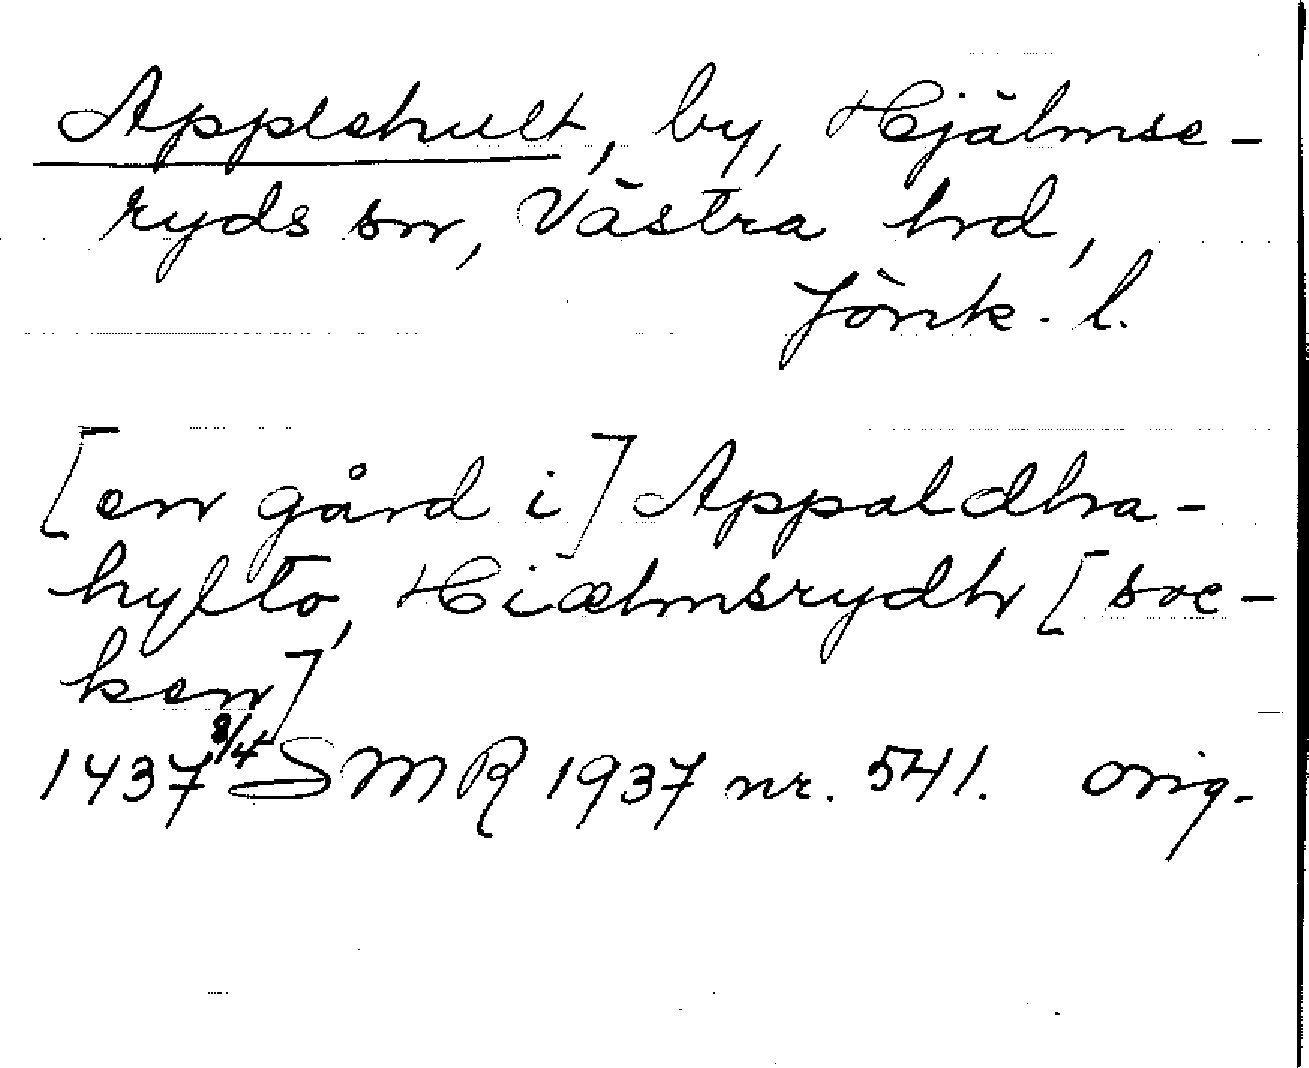 Applehult, by, Hjälmse-
ryds sn, Västra hd,
Jönk. l.
[en gård i] Appaldha-
hylto, Hiælmsrydh [soc-
ken]
1437 8/4 SMR 1937 nr. 541. orig.